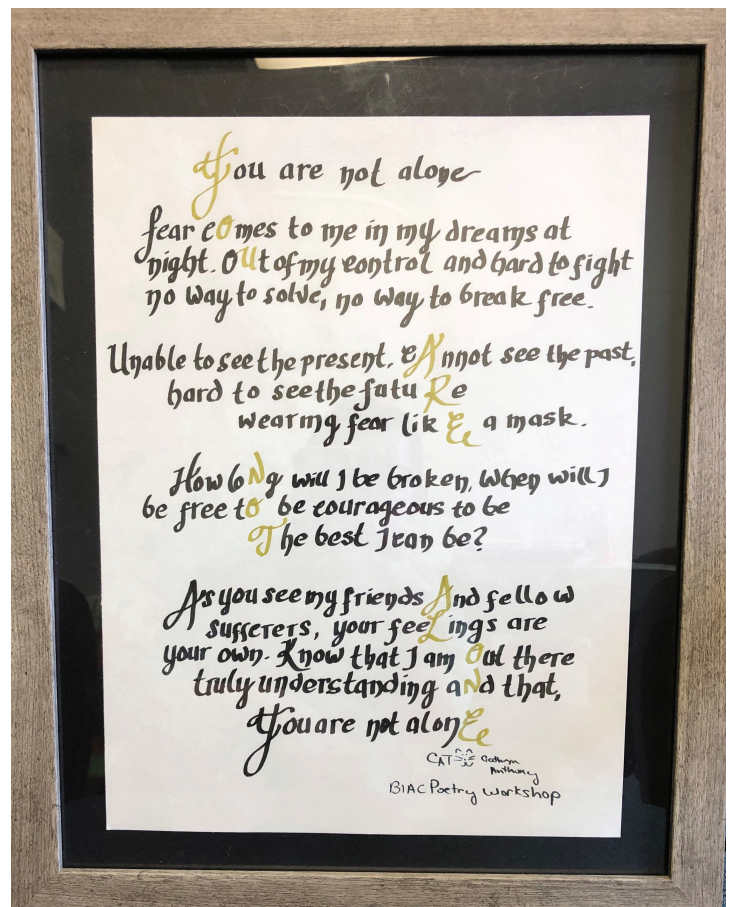 You are not alone
fear comes to me in my dreams at
night. OUt of my control and hard to fight
no way to solve, no way to break free.
Unable to see the present, cAnnot see the past,
hard to see the futuRe
wearing fear likE a mask.
How loNg will I be broken, When will I
be free to be courageous to be
The best I can be?
As you see my friends And fellow
sufferers, your feeLings are
your own. Know that I am Out there
truly understanding aNd that,
You are not alonE
CAT Anthony
BIAC Poetry Workshop